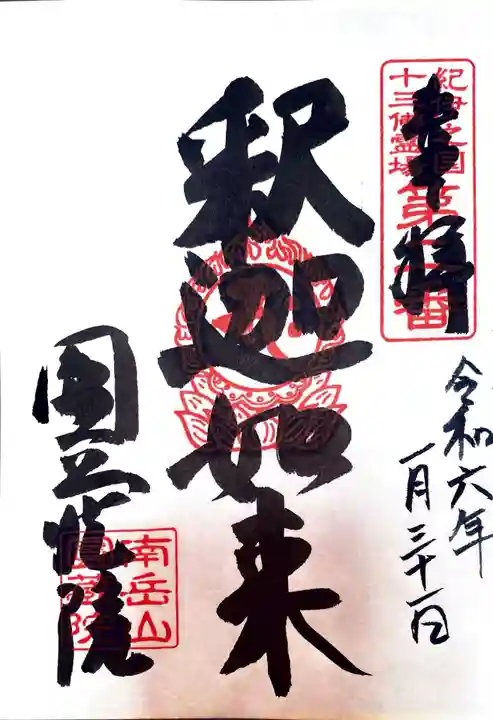 奉拝
紀伊之国
十三佛霊場
第二番
令和六年
一月三十一日
釈迦如来
圓蔵院
南岳山
圓蔵院